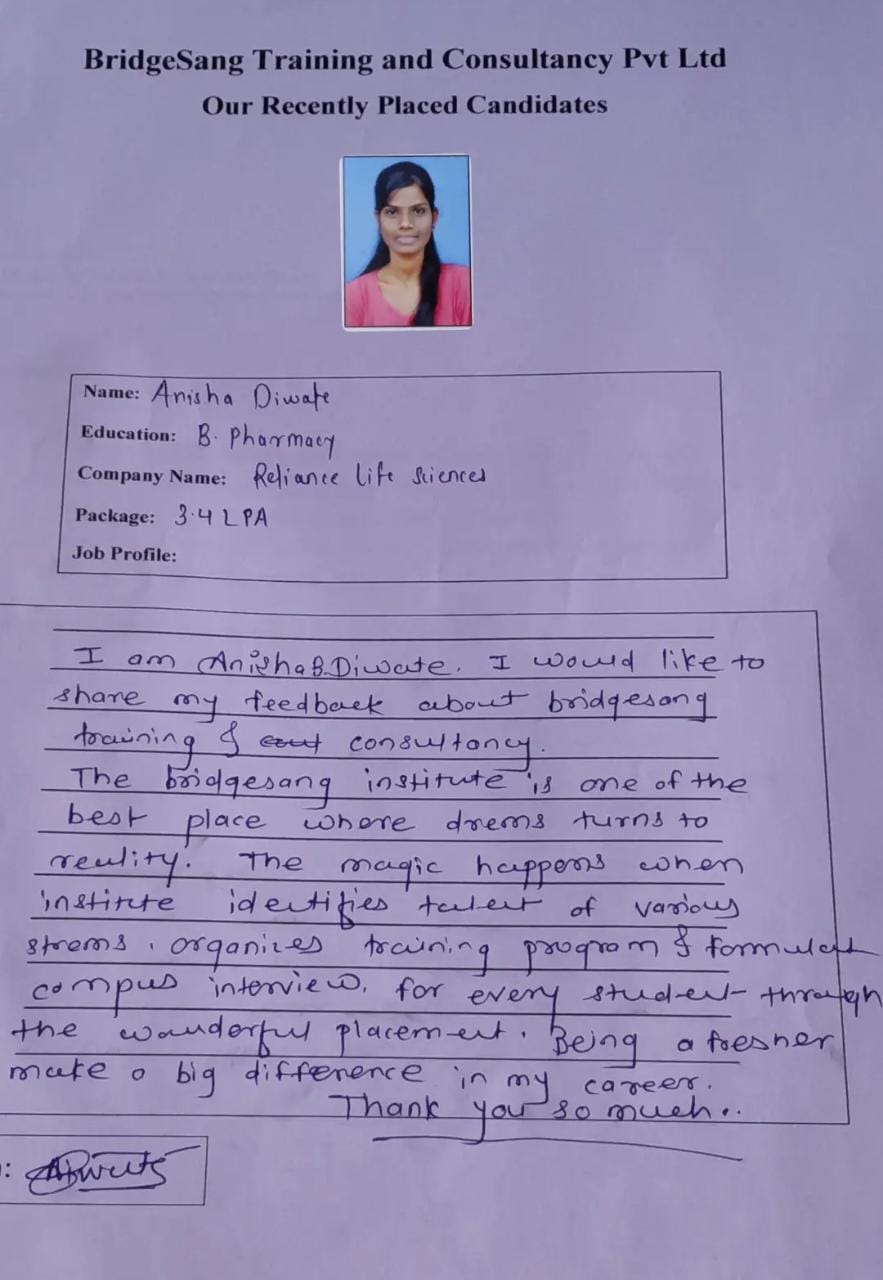 BridgeSang Training and Consultancy Pvt Ltd
Our Recently Placed Candidates
Name: Anisha Diwate
Education: B. Pharmacy
Company Name: Reliance Life Sciences
Package: 3.4 LPA
Job Profile:
I am Anisha B. Diwate. I would like to
share my feedback about bridgesang
training & consultancy.
The bridgesang institute is one of the
best place where drems turns to
reality. The magic happens when
institute identifies talent of various
strems, organizes training program & formulat
campus interview, for every student through
the wonderful placement. Being a fresher
make a big difference in my career.
Thank you so much..
: